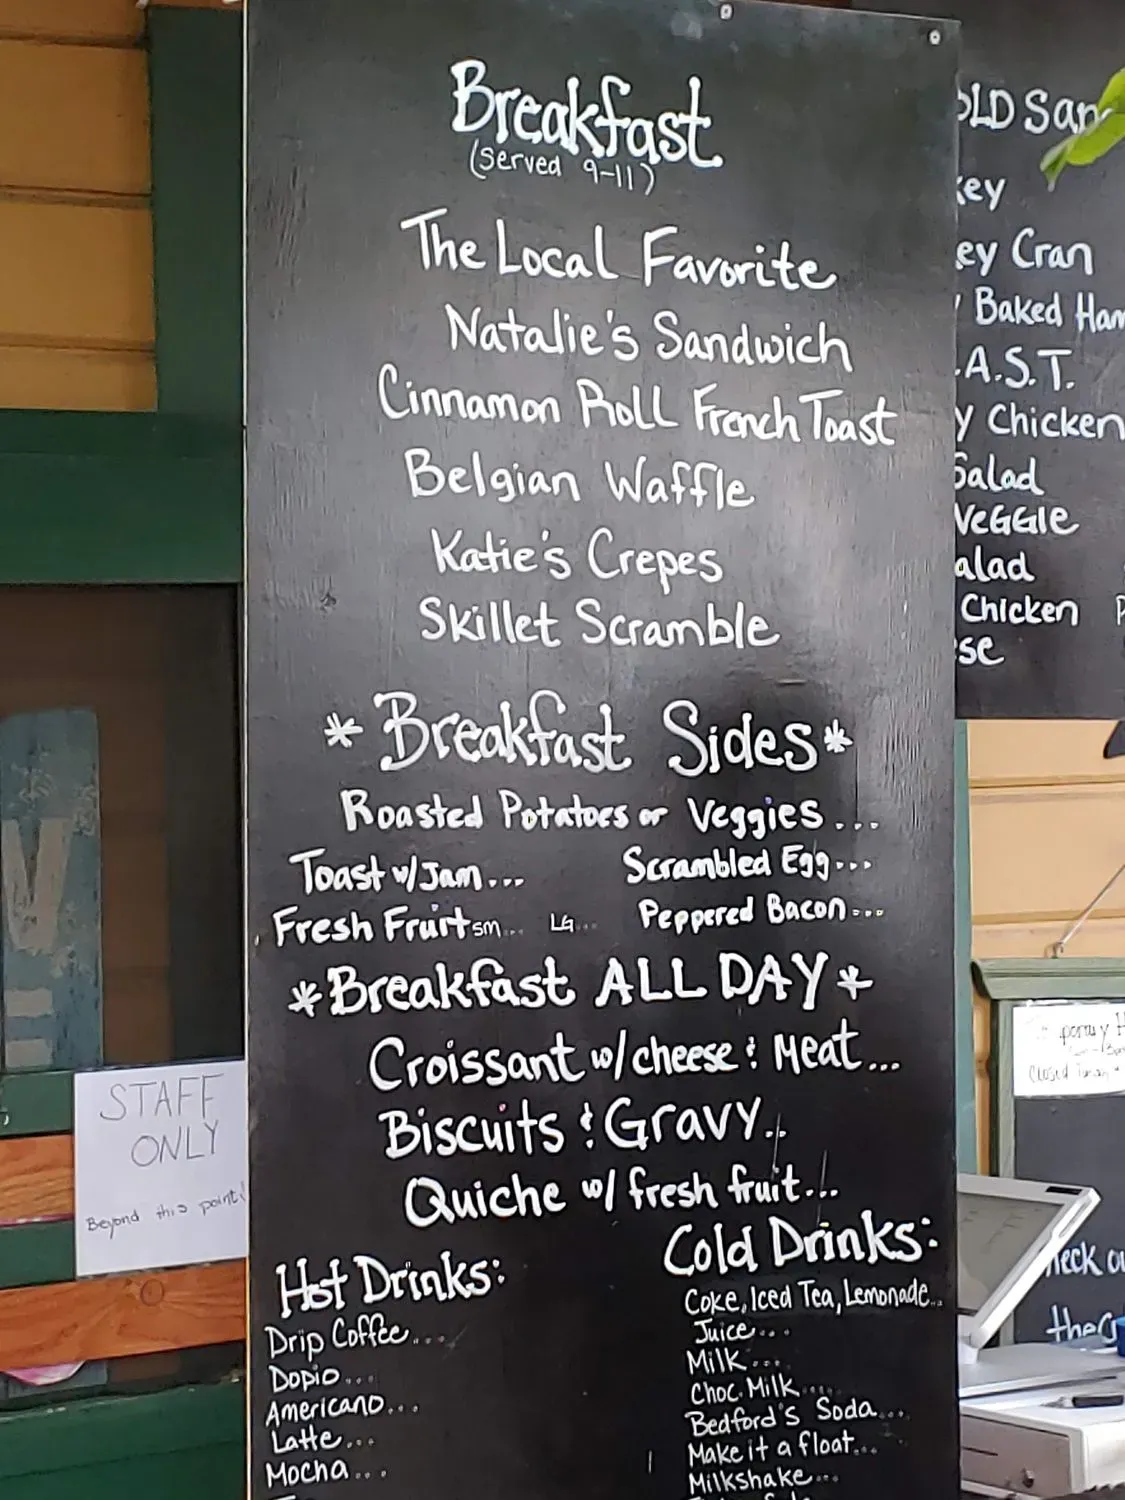 Breakfast
(served 9-11)
The Local Favorite
Natalie's Sandwich
Cinnamon Roll French Toast
Belgian Waffle
Katie's Crepes
Skillet Scramble
*Breakfast Sides*
Roasted Potatoes or Veggies...
Toast w/Jam... Scrambled Egg...
Fresh Fruit sm... LG... Peppered Bacon...
*Breakfast ALL DAY*
Croissant w/cheese & Meat...
Biscuits & Gravy..
Quiche w/ fresh fruit...
Hot Drinks:
Drip Coffee...
Dopio...
Americano...
Latte...
Mocha...
Cold Drinks:
Coke, Iced Tea, Lemonade...
Juice...
Milk...
Choc. Milk....
Bedford's Soda...
Make it a float...
Milkshake...
OLD San
key
ey Cran
Baked Ham
.A.S.T.
y Chicken
Salad
VeGGIe
alad
Chicken P
ese
STAFF
ONLY
Beyond this point!
Closed
heck ou
the G